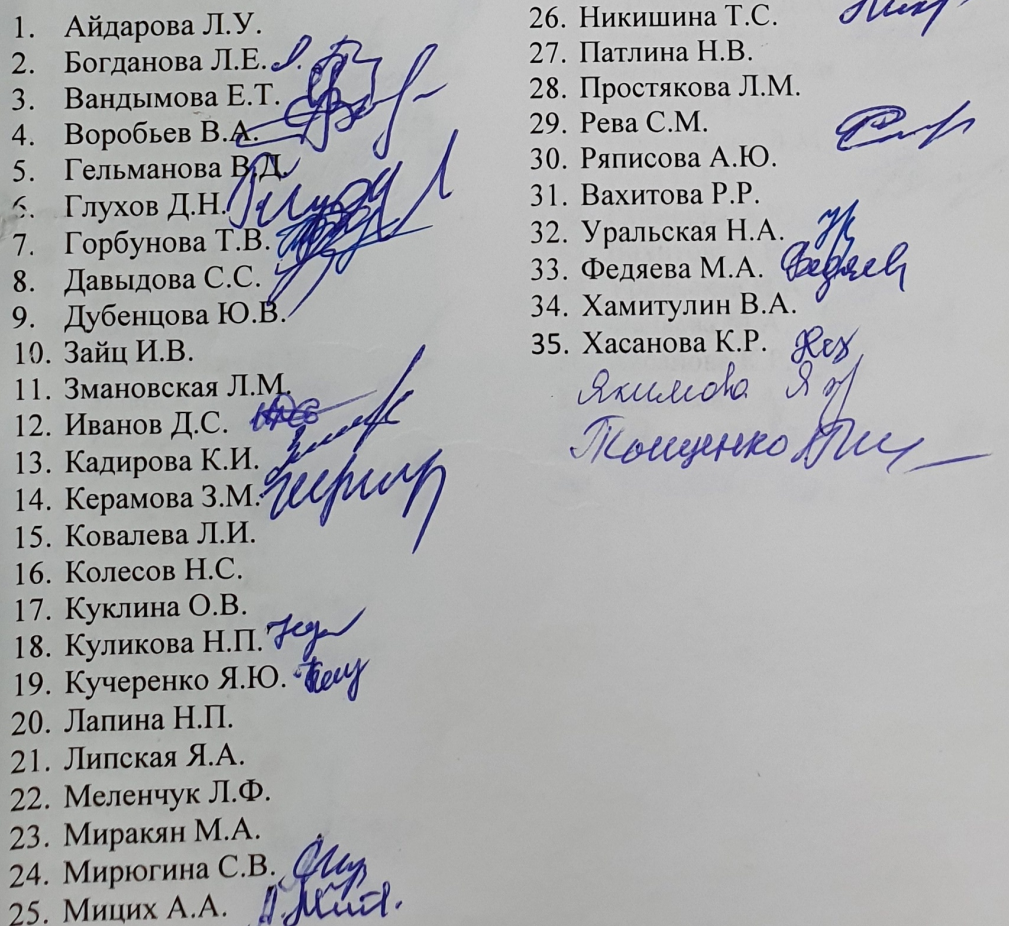 1. Айдарова Л.У.
2. Богданова Л.Е.
3. Вандымова Е.Т.
4. Воробьев В.А.
5. Гельманова В.Д.
6. Глухов Д.Н.
7. Горбунова Т.В.
8. Давыдова С.С.
9. Дубенцова Ю.В.
10. Зайц И.В.
11. Змановская Л.М.
12. Иванов Д.С.
13. Кадирова К.И.
14. Керамова З.М.
15. Ковалева Л.И.
16. Колесов Н.С.
17. Куклина О.В.
18. Куликова Н.П.
19. Кучеренко Я.Ю.
20. Лапина Н.П.
21. Липская Я.А.
22. Меленчук Л.Ф.
23. Миракян М.А.
24. Мирюгина С.В.
25. Мицих А.А.
26. Никишина Т.С.
27. Патлина Н.В.
28. Простякова Л.М.
29. Рева С.М.
30. Ряписова А.Ю.
31. Вахитова Р.Р.
32. Уральская Н.А.
33. Федяева М.А.
34. Хамитулин В.А.
35. Хасанова К.Р.
Якимова
Тощенко